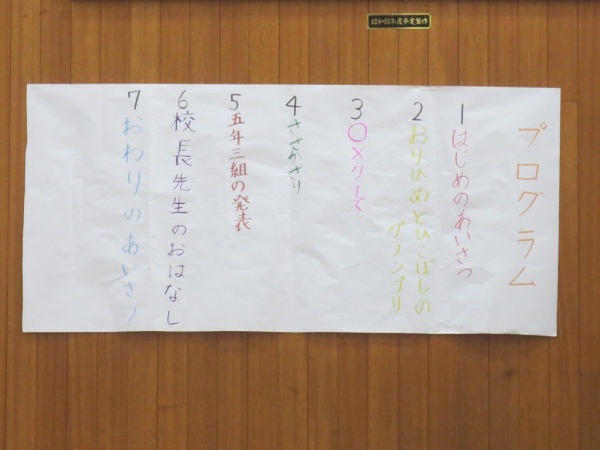 昭和52年度卒業製作
プログラム
1 はじめのあいさつ
2 おりひめとひこぼしの
グランプリ
3 〇×クイズ
4 ささかざり
5 五年三組の発表
6 校長先生のおはなし
7 おわりのあいさつ